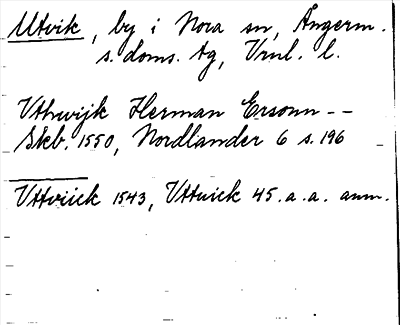 Utvik, by i Nora sn, Ångerm.
s. doms. tg, Vrnl. l.
Vthwijk Herman Ersonn --
Skb. 1550, Nordlander 6 s. 196
Vttviick 1543, Vttuick 45. a. a. anm.